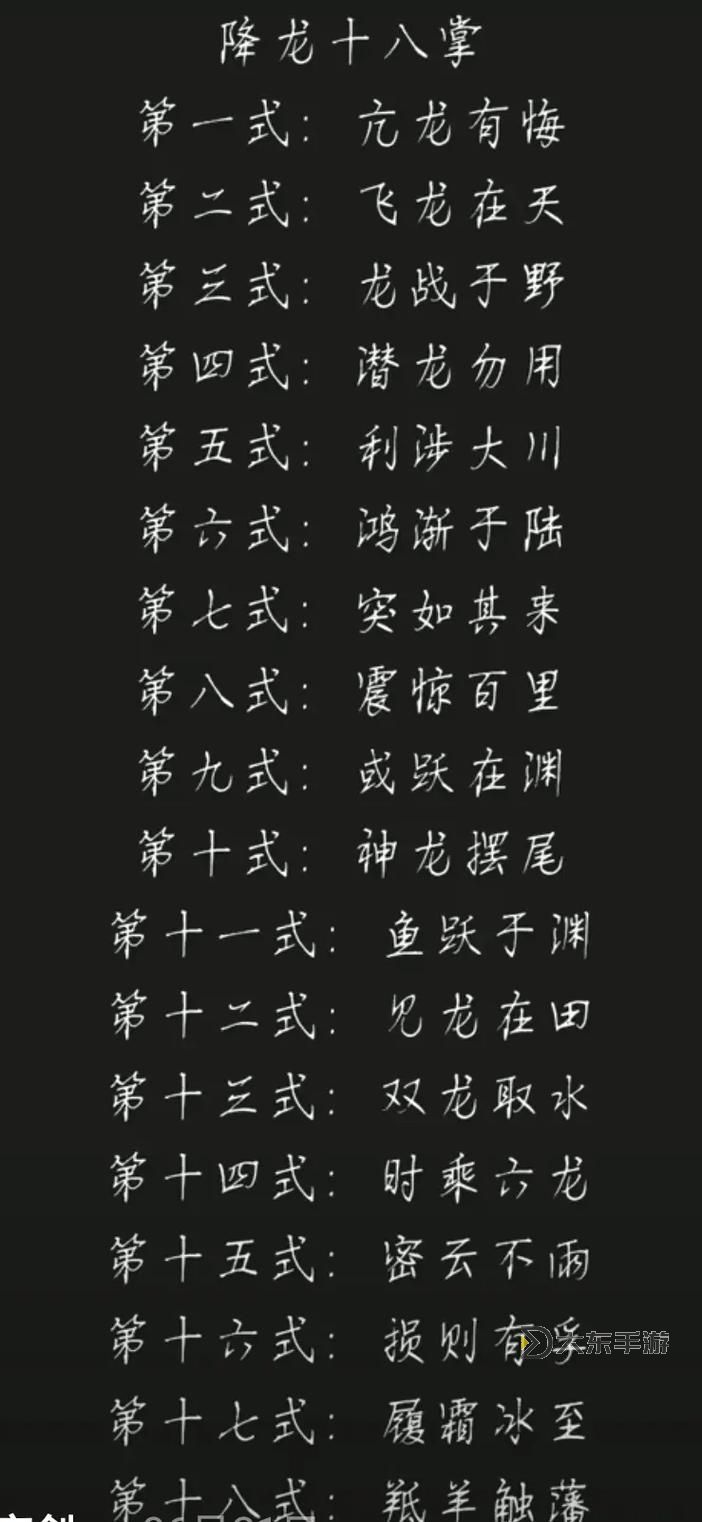 降龙十八掌
第一式：亢龙有悔
第二式：飞龙在天
第三式：龙战于野
第四式：潜龙勿用
第五式：利涉大川
第六式：鸿渐于陆
第七式：突如其来
第八式：震惊百里
第九式：或跃在渊
第十式：神龙摆尾
第十一式：鱼跃于渊
第十二式：见龙在田
第十三式：双龙取水
第十四式：时乘六龙
第十五式：密云不雨
第十六式：损则有孚
大东手游
第十七式：履霜冰至
第十八式：羝羊触藩